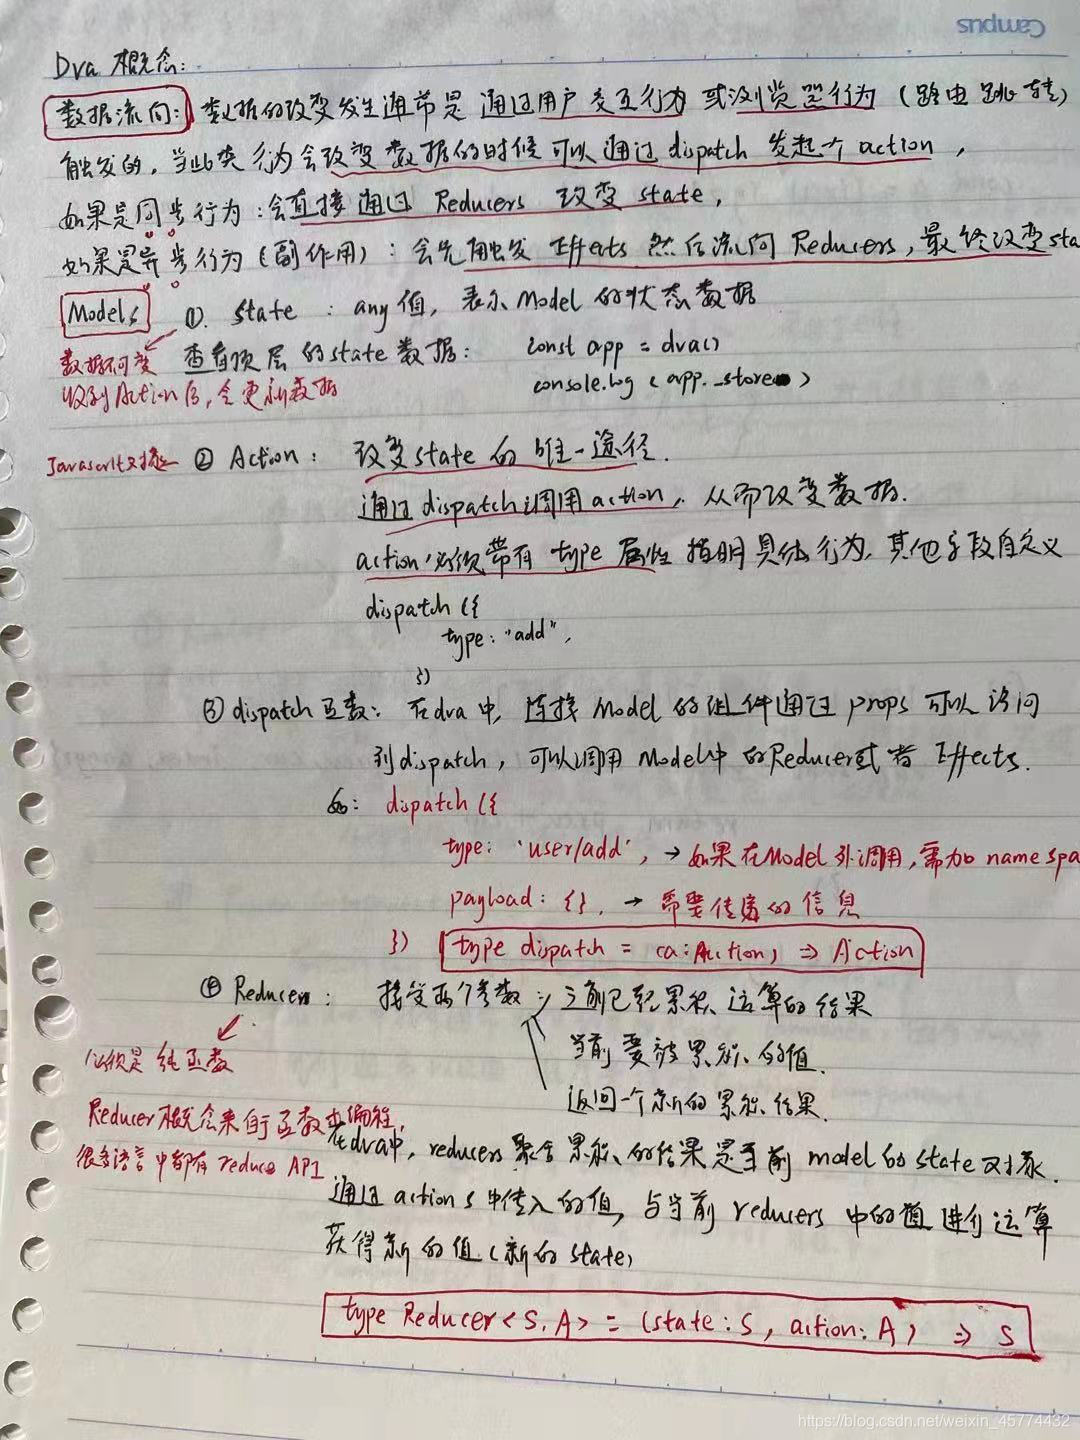 Campus
Dva 概念:
数据流向: 数据的改变发生通常是 通过用户交互行为 或浏览器行为 (路由跳转)
触发的, 当此类行为会改变数据的时候可以通过 dispatch 发起个 action,
如果是同步行为: 会直接通过 Reducers 改变 state,
如果是异步行为 (副作用): 会先触发 Effects 然后流向 Reducers, 最终改变 sta
Models ①. state : any 值, 表示 Model 的状态数据
数据不可变 查看顶层的 state 数据: const app = dva()
收到 Action 后, 会更新数据 console.log (app._store)
Javascript对象 ② Action: 改变 state 的唯一途径.
通过 dispatch 调用 action, 从而改变数据.
action 必须带有 type 属性 指明具体行为, 其他字段自定义
dispatch ({
type: "add",
})
③ dispatch 函数: 在dva中, 连接 Model 的组件通过 props 可以访问
到 dispatch, 可以调用 Model 中的 Reducer 或者 Effects.
如: dispatch ({
type: 'user/add', → 如果在 Model 外调用, 需加 name spa
payload: {}, → 需要传递的信息
}) type dispatch = (a: Action) => Action
④ Reducer: 接受两个参数: 之前已经累积运算的结果
当前要被累积的值.
必须是纯函数
返回一个新的累积结果.
Reducer 概念来自于函数式编程,
在dva中, reducers 聚合累积的结果是当前 model 的 state 对象.
很多语言中都有 reduce API
通过 actions 中传入的值, 与当前 reducers 中的值进行运算
获得新的值 (新的 state)
type Reducer<S, A> = (state: S, action: A) => S
https://blog.csdn.net/weixin_45774432